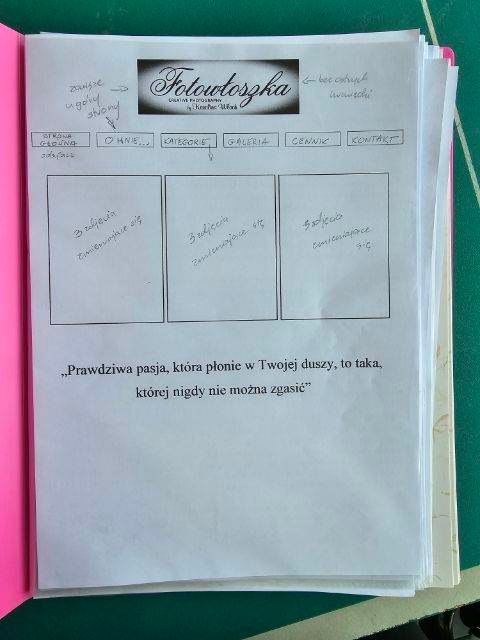 zawsze
u góry
strony
Fotowłoszka
CREATIVE PHOTOGRAPHY
by
bez ostrych
krawędzi
STRONA
GŁÓWNA
O MNIE...
KATEGORIE
GALERIA
CENNIK
KONTAKT
3 zdjęcia
zmieniające się
3 zdjęcia
zmieniające się
3 zdjęcia
zmieniające
się
„Prawdziwa pasja, która płonie w Twojej duszy, to taka,
której nigdy nie można zgasić”